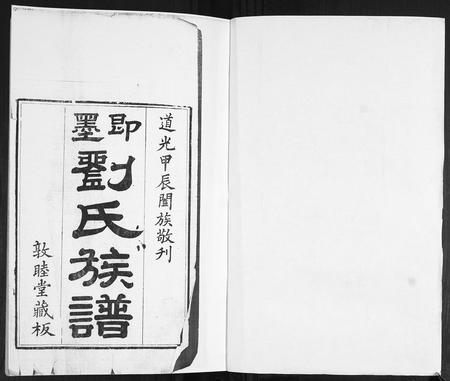 道光甲辰闔族敬刊
即墨
劉氏族譜
敦睦堂藏板